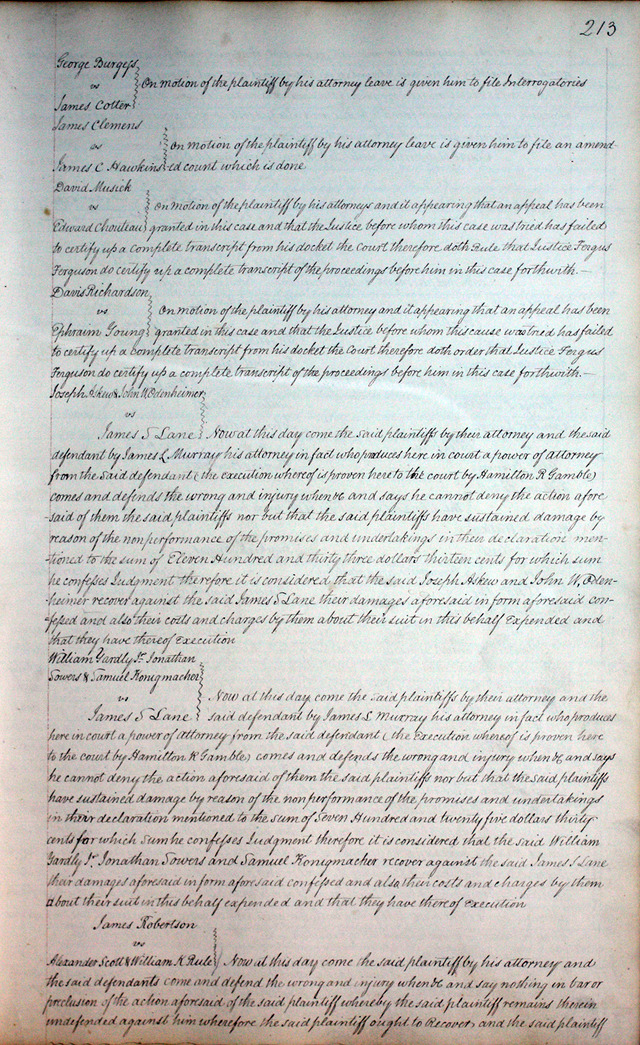 213
George Burgess
vs On motion of the plaintiff by his attorney leave is given him to file Interrogatories
James Cotter
James Clemens
vs On motion of the plaintiff by his attorney leave is given him to file an amend-
James C Hawkins ed count which is done
David Musick
vs On motion of the plaintiff by his attorneys and it appearing that an appeal has been
Edward Chouteau granted in this case and that the Justice before whom this case was tried has failed
to certify up a complete transcript from his docket the Court therefore doth Rule that Justice Fergus
Ferguson do certify up a complete transcript of the proceedings before him in this case forthwith. —
Davis Richardson
vs On motion of the plaintiff by his attorney and it appearing that an appeal has been
Ephraim Young granted in this case and that the Justice before whom this cause was tried has failed
to certify up a complete transcript from his docket the Court therefore doth order that Justice Fergus
Ferguson do certify up a complete transcript of the proceedings before him in this case forthwith. —
Joseph Askew & John W Odenheimer
vs
James S Lane Now at this day come the said plaintiffs by their attorney and the said
defendant by James L Murray his attorney in fact who produces here in court a power of attorney
from the said defendant (the execution whereof is proven here to the court by Hamilton R Gamble)
comes and defends the wrong and injury when &c and says he cannot deny the action afore
said of them the said plaintiffs nor but that the said plaintiffs have sustained damage by
reason of the nonperformance of the promises and undertakings in their declaration men-
-tioned to the sum of Eleven Hundred and thirty three dollars thirteen cents for which sum
he confesses Judgment therefore it is considered that the said Joseph Askew and John W. Oden-
-heimer recover against the said James S Lane their damages aforesaid in form aforesaid con-
-fessed and also their costs and charges by them about their suit in this behalf Expended and
that they have thereof Execution
William Yardly Jr. Jonathan
Sowers & Samuel Konigmacher
vs Now at this day come the said plaintiffs by their attorney and the
James S Lane said defendant by James L Murray his attorney in fact who produces
here in court a power of attorney from the said defendant (the Execution whereof is proven here
to the court by Hamilton R Gamble) comes and defends the wrong and injury when &c and says
he cannot deny the action aforesaid of them the said plaintiffs nor but that the said plaintiffs
have sustained damage by reason of the nonperformance of the promises and undertakings
in their declaration mentioned to the sum of Seven Hundred and twenty five dollars thirty
cents for which sum he confesses Judgment therefore it is considered that the said William
Yardly Jr. Jonathan Sowers and Samuel Konigmacher recover against the said James S Lane
their damages aforesaid in form aforesaid confessed and also their costs and charges by them
about their suit in this behalf expended and that they have there of Execution
James Robertson
vs
Alexander Scott & William K Rule Now at this day come the said plaintiff by his attorney and
the said defendants come and defend the wrong and injury when &c and say nothing in bar or
preclusion of the action aforesaid of the said plaintiff whereby the said plaintiff remains therein
undefended against him wherefore the said plaintiff ought to Recover and the said plaintiff